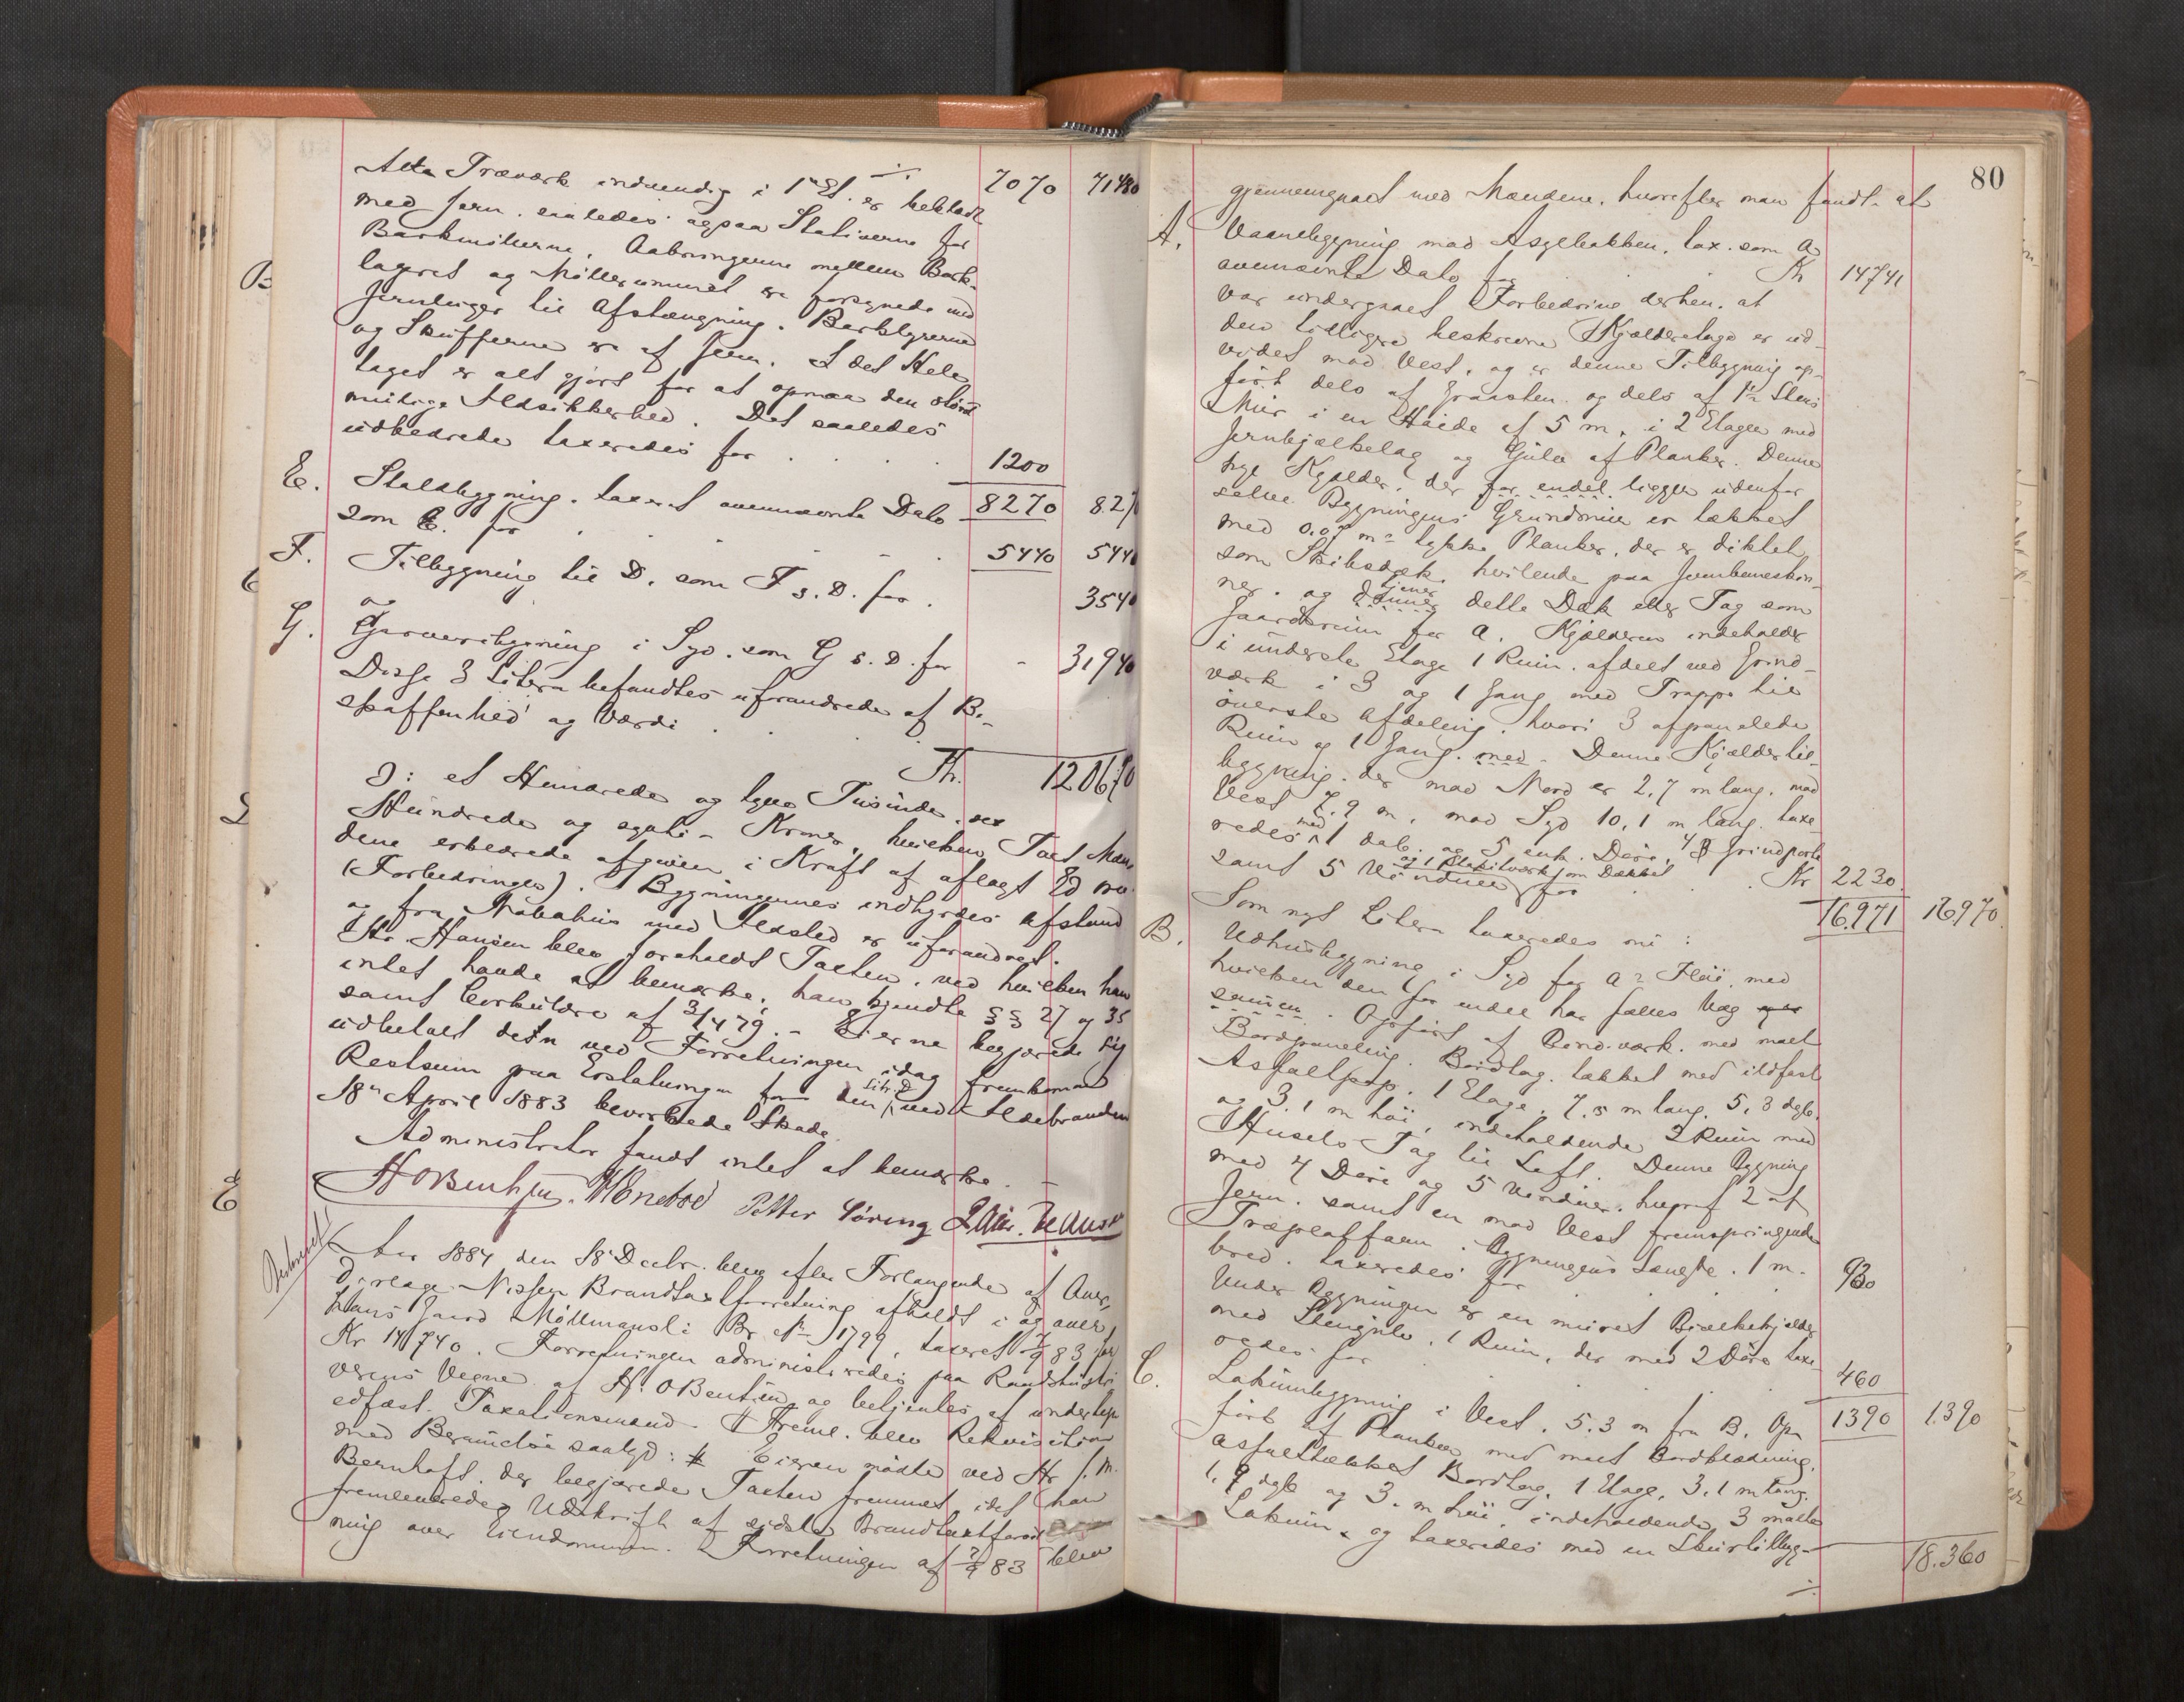 Alta Træværk indvendig i 1ste Et. er beklædt 7070 71480
med Jern. saaledes ogsaa Stativerne for
Barkmøllerne. Aabningerne mellem Bark-
lageret og Møllerummet er forsynede med
Jernluger til Afstængning. Barkbyrerne
og Skufferne er af Jern. I det Hele
taget er alt gjort for at opnaa den størst
mulige Ildsikkerhed. Det saaledes
udbedrede taxeredes for 1200
8270 827
E. Staldbygning. taxeret ovennævnte Dato
som E. for 5440 5440
F. Tilbygning til D. som F s. D. for 3540
og
G. Garveribygning i Syd. som G s. D. for 31940
Disse 3 Litera befandtes uforandrede af Be-
skaffenhed og Værdi
Kr. 120670
ɔ: et Hundrede og tyve Tusinde sex
Hundrede og sytti - Kroner, hvilken Taxt Mæn-
dene erklærede afgiven i Kraft af aflagt Ed
(Forbedringen). Bygningernes indbyrdes Afstand
og fra Nabohus med Ildsted er uforandret.
Hr. Hansen blev foreholdt Taxten, ved hvilken han
intet havde at bemærke; han kjendte §§ 27 og 35
samt Cirkulære af 3/4 79. - Eierne begjærede sig
udbetalt den ved Forretningen idag fremkomne
Restsum paa Erstatningen for den Litr. D ved Ildebranden
18de April 1883 bevirkede Skade.
Administrator fandt intet at bemærke. -
Petter Søring
Aar 1884 den 18 Decbr. blev efter Forlangende af Over-
Nissen Brandtaxtforretning afholdt i og over
Hans Gaard Møllmansli Br. No 1799, taxeret 7/9 83 for
Kr 14740. Forretningen administreredes paa
Vegne af H. O Bentzen og betjentes af undertegn
edfæst. Taxationsmænd. Freml. blev Rekvisition
med Berammelse saalyd: # Eieren mødte ved Hr J. M.
Bernhoft. der begjærede Taxten fremmet, idet han
fremleverede Udskrift af sidste Brandtaxtforret-
ning over Eiendommen. Forretningen af 7/9 83 blev
80
gjennemgaaet med Mændene, hvorefter man fandt at
A. Vaanebygning mod Asylbakken. tax. som A
ovennævnte Dato for Kr 14741
var undergaaet Forbedring derhen. at
den tidligere beskrevne Kjælderetage er ud-
videt mod Vest, og er denne Tilbygning op-
ført dels af Graasten og dels af 1½ Stens
Mur i en Høide af 5 m, i 2 Etager med
Jernbjælkelag og Gulv af Planker. Denne
nye Kjælder, der for endel ligger udenfor
selve Bygningens Grundmur er tækket
med 0.07 m tykke Planker, der er diktet
som Skibsdæk hvilende paa
ner. og tjener danner dette Dæk eller Tag som
Gaardsrum for A. Kjælderen indeholder
i underste Etage 1 Rum. afdelt ved Grind-
værk i 3 og 1 Gang med Trappe til
øverste Afdeling. hvori 3 afpanelede
Rum og 1 Gang. med. Denne Kjældertil-
bygning. der mod Nord er 2,7 m lang. mod
Vest 7,9 m, mod Syd 10,1 m lang. taxe-
redes med 1 dob. og 5 enk. Døre, 4 Grindporte
samt 5 Vinduer og 1 Stakitværk om Dækket for Kr 2230
16.971 16970
Som nyt Litera taxeredes nu:
B. Udhusbygning i Syd for A's Fløi, med
hvilken den for endel har fælles Væg
sammen. Opført af Bind.værk. med malt
Bordpaneling. Bordtag. tækket med ildfast
Asfaltpap. 1 Etage. 7.5 m lang. 5,3 dyb.
og 3.1 m høi, indeholdende 2 Rum med
Skusels Tag til Loft. Denne Bygning
med 4 Døre og 5 Vinduer. hvoraf 2 af
Jern. samt en mod Vest fremspringende
Træplatform i Bygningens Længde. 1 m.
bred. taxeredes for 930
Under Bygningen er en muret Bjælkekjælder
med Stengulv. 1 Rum, der med 2 Døre taxe-
redes for 460
1390 1.390
C. Lokumbygning i Vest. 5.3 m fra B. Op-
ført af Planker med malt Bordklædning.
asfalttækket Bordtag. 1 Etage, 3,1 m lang.
1,9 dyb og 3. m høi, indeholdende 3 malte
Lokum. og taxeredes med en Skurtilbyg- 18.360